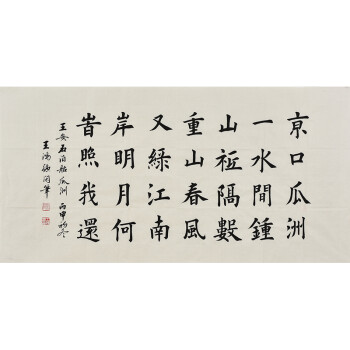 亰口瓜洲
一水間鍾
山祗隔數
重山春風
又綠江南
岸明月何
旹照我還
王安石泊船瓜洲 丙申初冬
王
筆